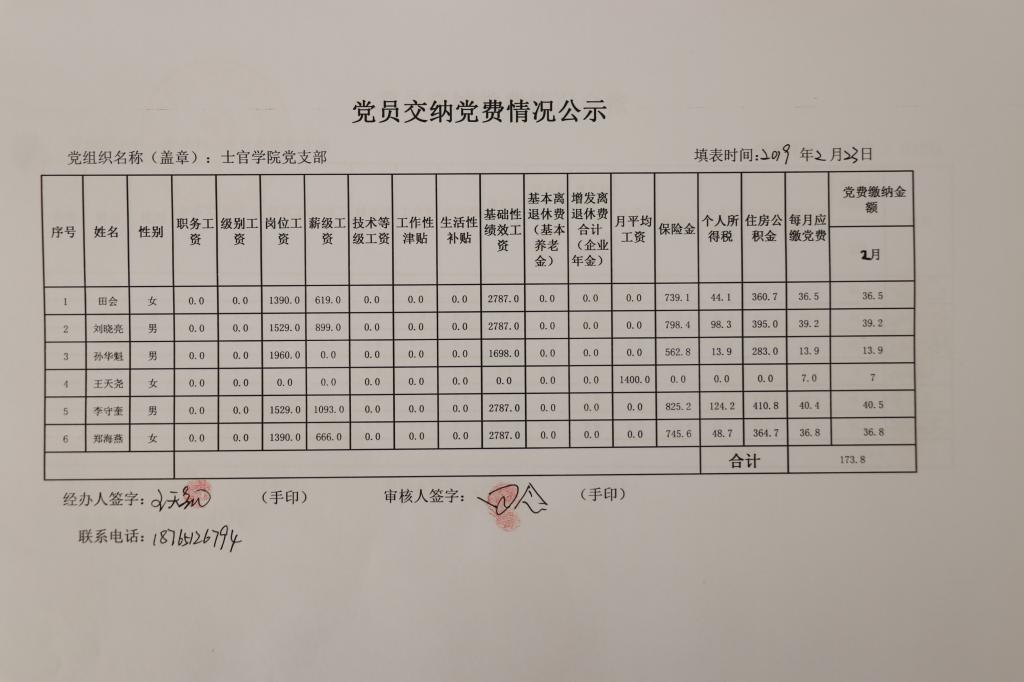 党员交纳党费情况公示
党组织名称（盖章）：士官学院党支部 填表时间:2019 年2月23日
序号 姓名 性别 职务工资 级别工资 岗位工资 薪级工资 技术等级工资 工作性津贴 生活性补贴 基础性绩效工资 基本离退休费（基本养老金） 增发离退休费合计（企业年金） 月平均工资 保险金 个人所得税 住房公积金 每月应缴党费 党费缴纳金额
2月
1 田会 女 0.0 0.0 1390.0 619.0 0.0 0.0 0.0 2787.0 0.0 0.0 0.0 739.1 44.1 360.7 36.5 36.5
2 刘晓亮 男 0.0 0.0 1529.0 899.0 0.0 0.0 0.0 2787.0 0.0 0.0 0.0 798.4 98.3 395.0 39.2 39.2
3 孙华魁 男 0.0 0.0 1960.0 0.0 0.0 0.0 0.0 1698.0 0.0 0.0 0.0 562.8 13.9 283.0 13.9 13.9
4 王天尧 女 0.0 0.0 0.0 0.0 0.0 0.0 0.0 0.0 0.0 0.0 1400.0 0.0 0.0 0.0 7.0 7
5 李守奎 男 0.0 0.0 1529.0 1093.0 0.0 0.0 0.0 2787.0 0.0 0.0 0.0 825.2 124.2 410.8 40.4 40.5
6 郑海燕 女 0.0 0.0 1390.0 666.0 0.0 0.0 0.0 2787.0 0.0 0.0 0.0 745.6 48.7 364.7 36.8 36.8
合计 173.8
经办人签字： （手印） 审核人签字： 田会 （手印）
联系电话：18765126794